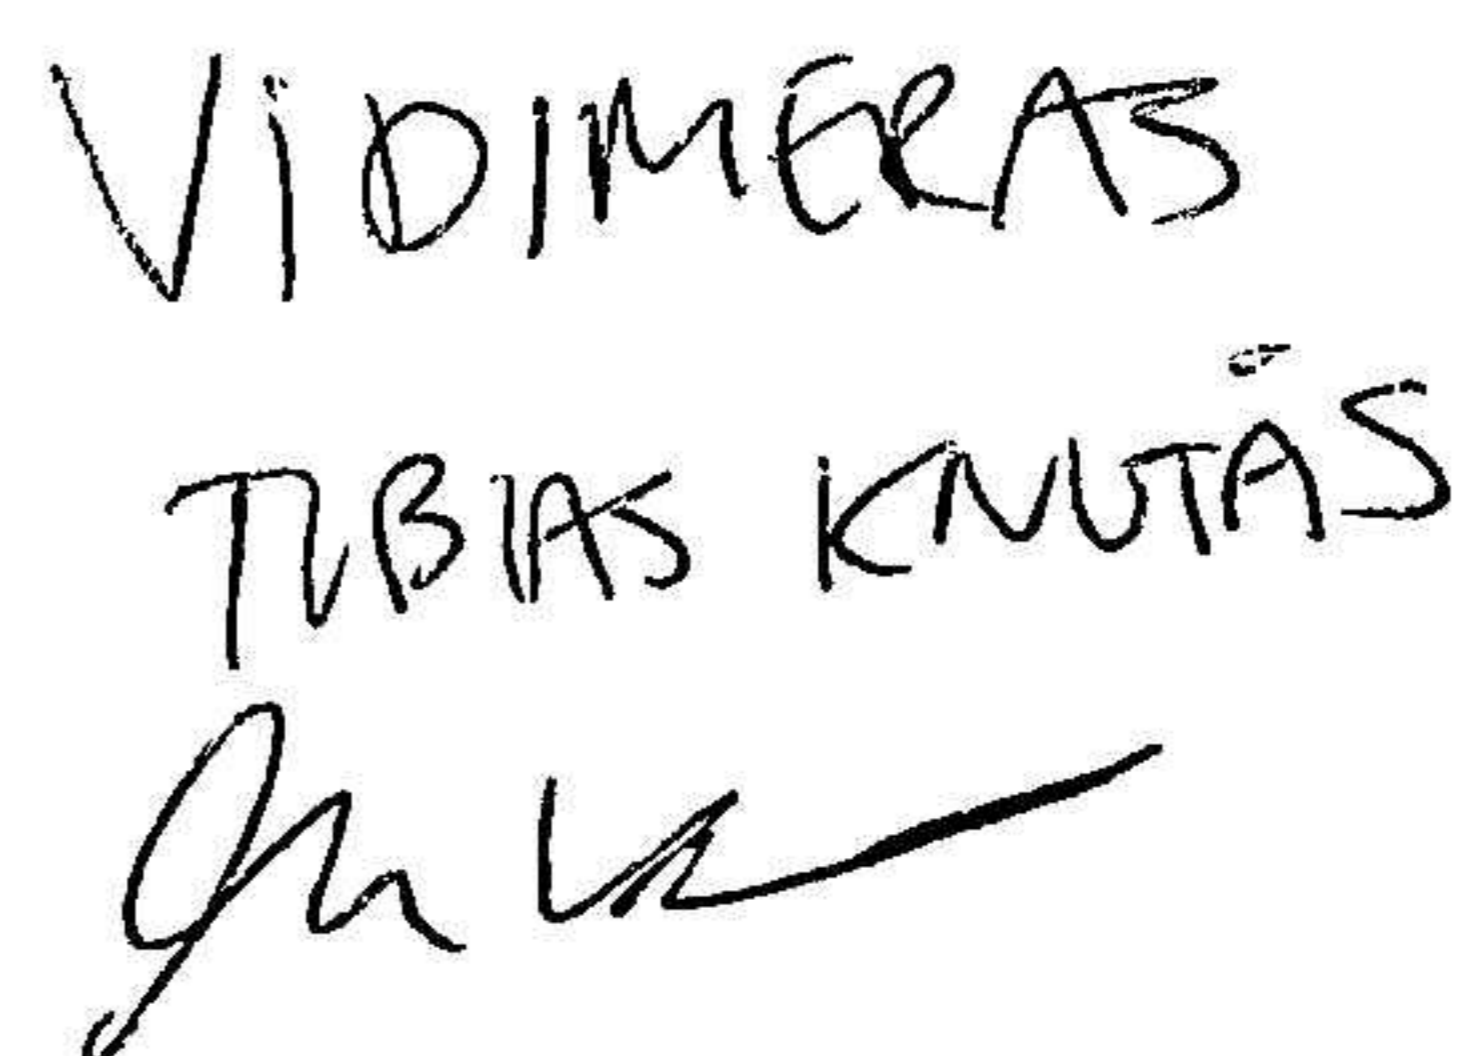 VIDIMERAS
TOBIAS KNUTÅS